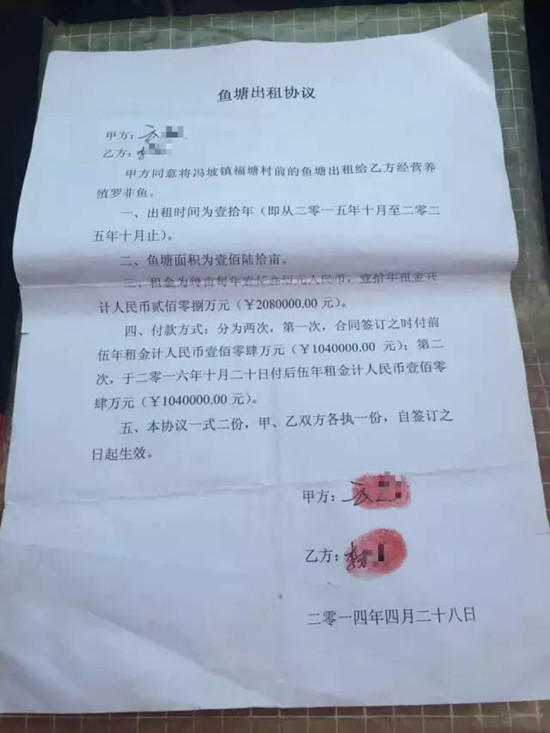 鱼塘出租协议
甲方:
乙方:
甲方同意将冯坡镇福塘村前的鱼塘出租给乙方经营养
殖罗非鱼。
一、出租时间为壹拾年（即从二零一五年十月至二零二
五年十月止）。
二、鱼塘面积为壹佰陆拾亩。
三、租金为每亩每年壹仟叁佰元人民币，壹拾年租金共
计人民币贰佰零捌万元（￥2080000.00 元）。
四、付款方式：分为两次，第一次，合同签订之时付前
伍年租金计人民币壹佰零肆万元（￥1040000.00 元）；第二
次，于二零一六年十月二十日付后伍年租金计人民币壹佰零
肆万元（￥1040000.00 元）。
五、本协议一式二份，甲、乙双方各执一份，自签订之
日起生效。
甲方:
乙方:
二零一四年四月二十八日